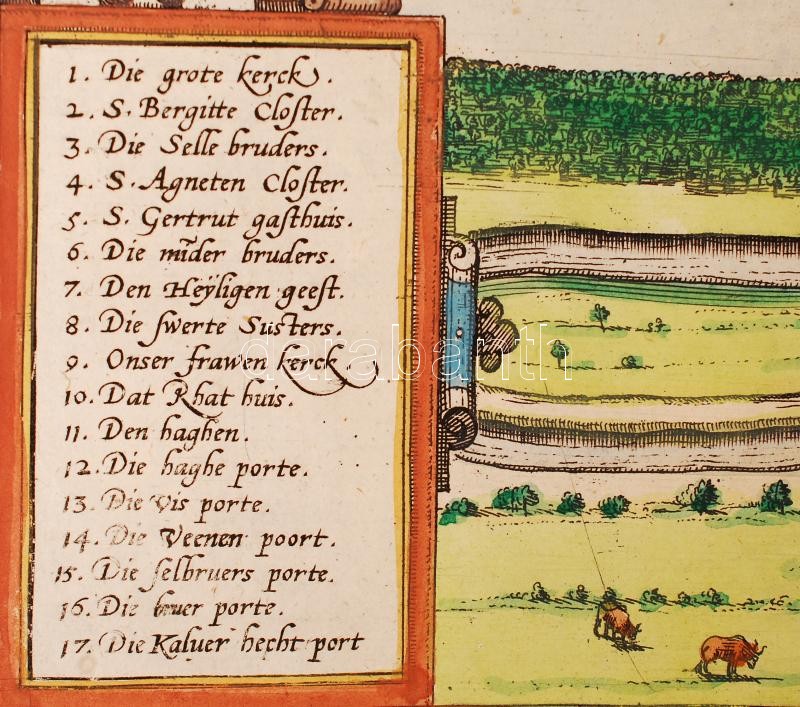 1. Die grote kerck.
2. S. Bergitte Closter.
3. Die Selle bruders.
4. S. Agneten Closter.
5. S. Gertrut gasthuis.
6. Die mīder bruders.
7. Den Heÿligen geest.
8. Die swerte Susters.
9. Onser frawen kerck.
10. Dat Rhat huis.
11. Den haghen.
12. Die haghe porte.
13. Die vis porte.
14. Die Veenen poort.
15. Die selbruers porte.
16. Die porte.
17. Die Kaluer hecht port
darabanth